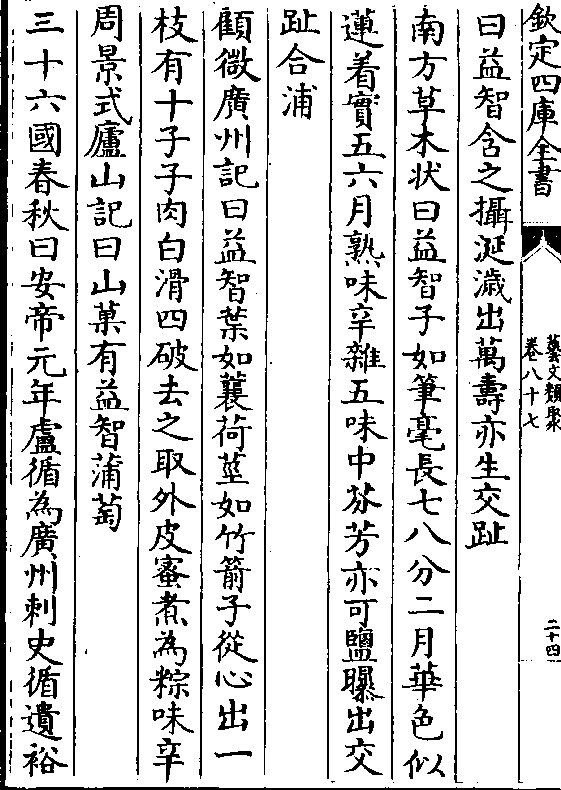 欽定四庫全書
藝文類聚
卷八十七
二十四
曰益智含之攝涎濊出萬壽亦生交趾
南方草木狀曰益智子如筆毫長七八分二月華色似
蓮着實五六月熟味辛雜五味中芬芳亦可鹽曝出交
趾合浦
顧微廣州記曰益智葉如蘘荷莖如竹箭子從心出一
枝有十子子肉白滑四破去之取外皮蜜煮為粽味辛
周景式廬山記曰山菓有益智蒲萄
三十六國春秋曰安帝元年盧循為廣州刺史循遺裕